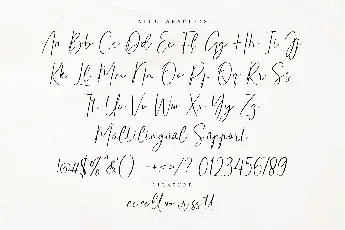 Aa Bb Cc Dd Ee Ff Gg Hh Ii Jj
Kk Ll Mm Nn Oo Pp Qq Rr Ss
Tt Uu Vv Ww Xx Yy Zz
Multilingual Support
0123456789
LIGATURE